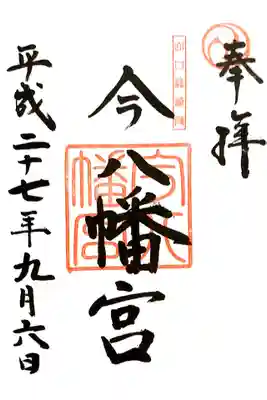 奉拝
今八幡宮
平成二十七年九月六日